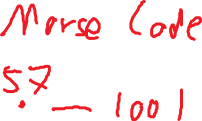 Morse Code
5.7 — 1001